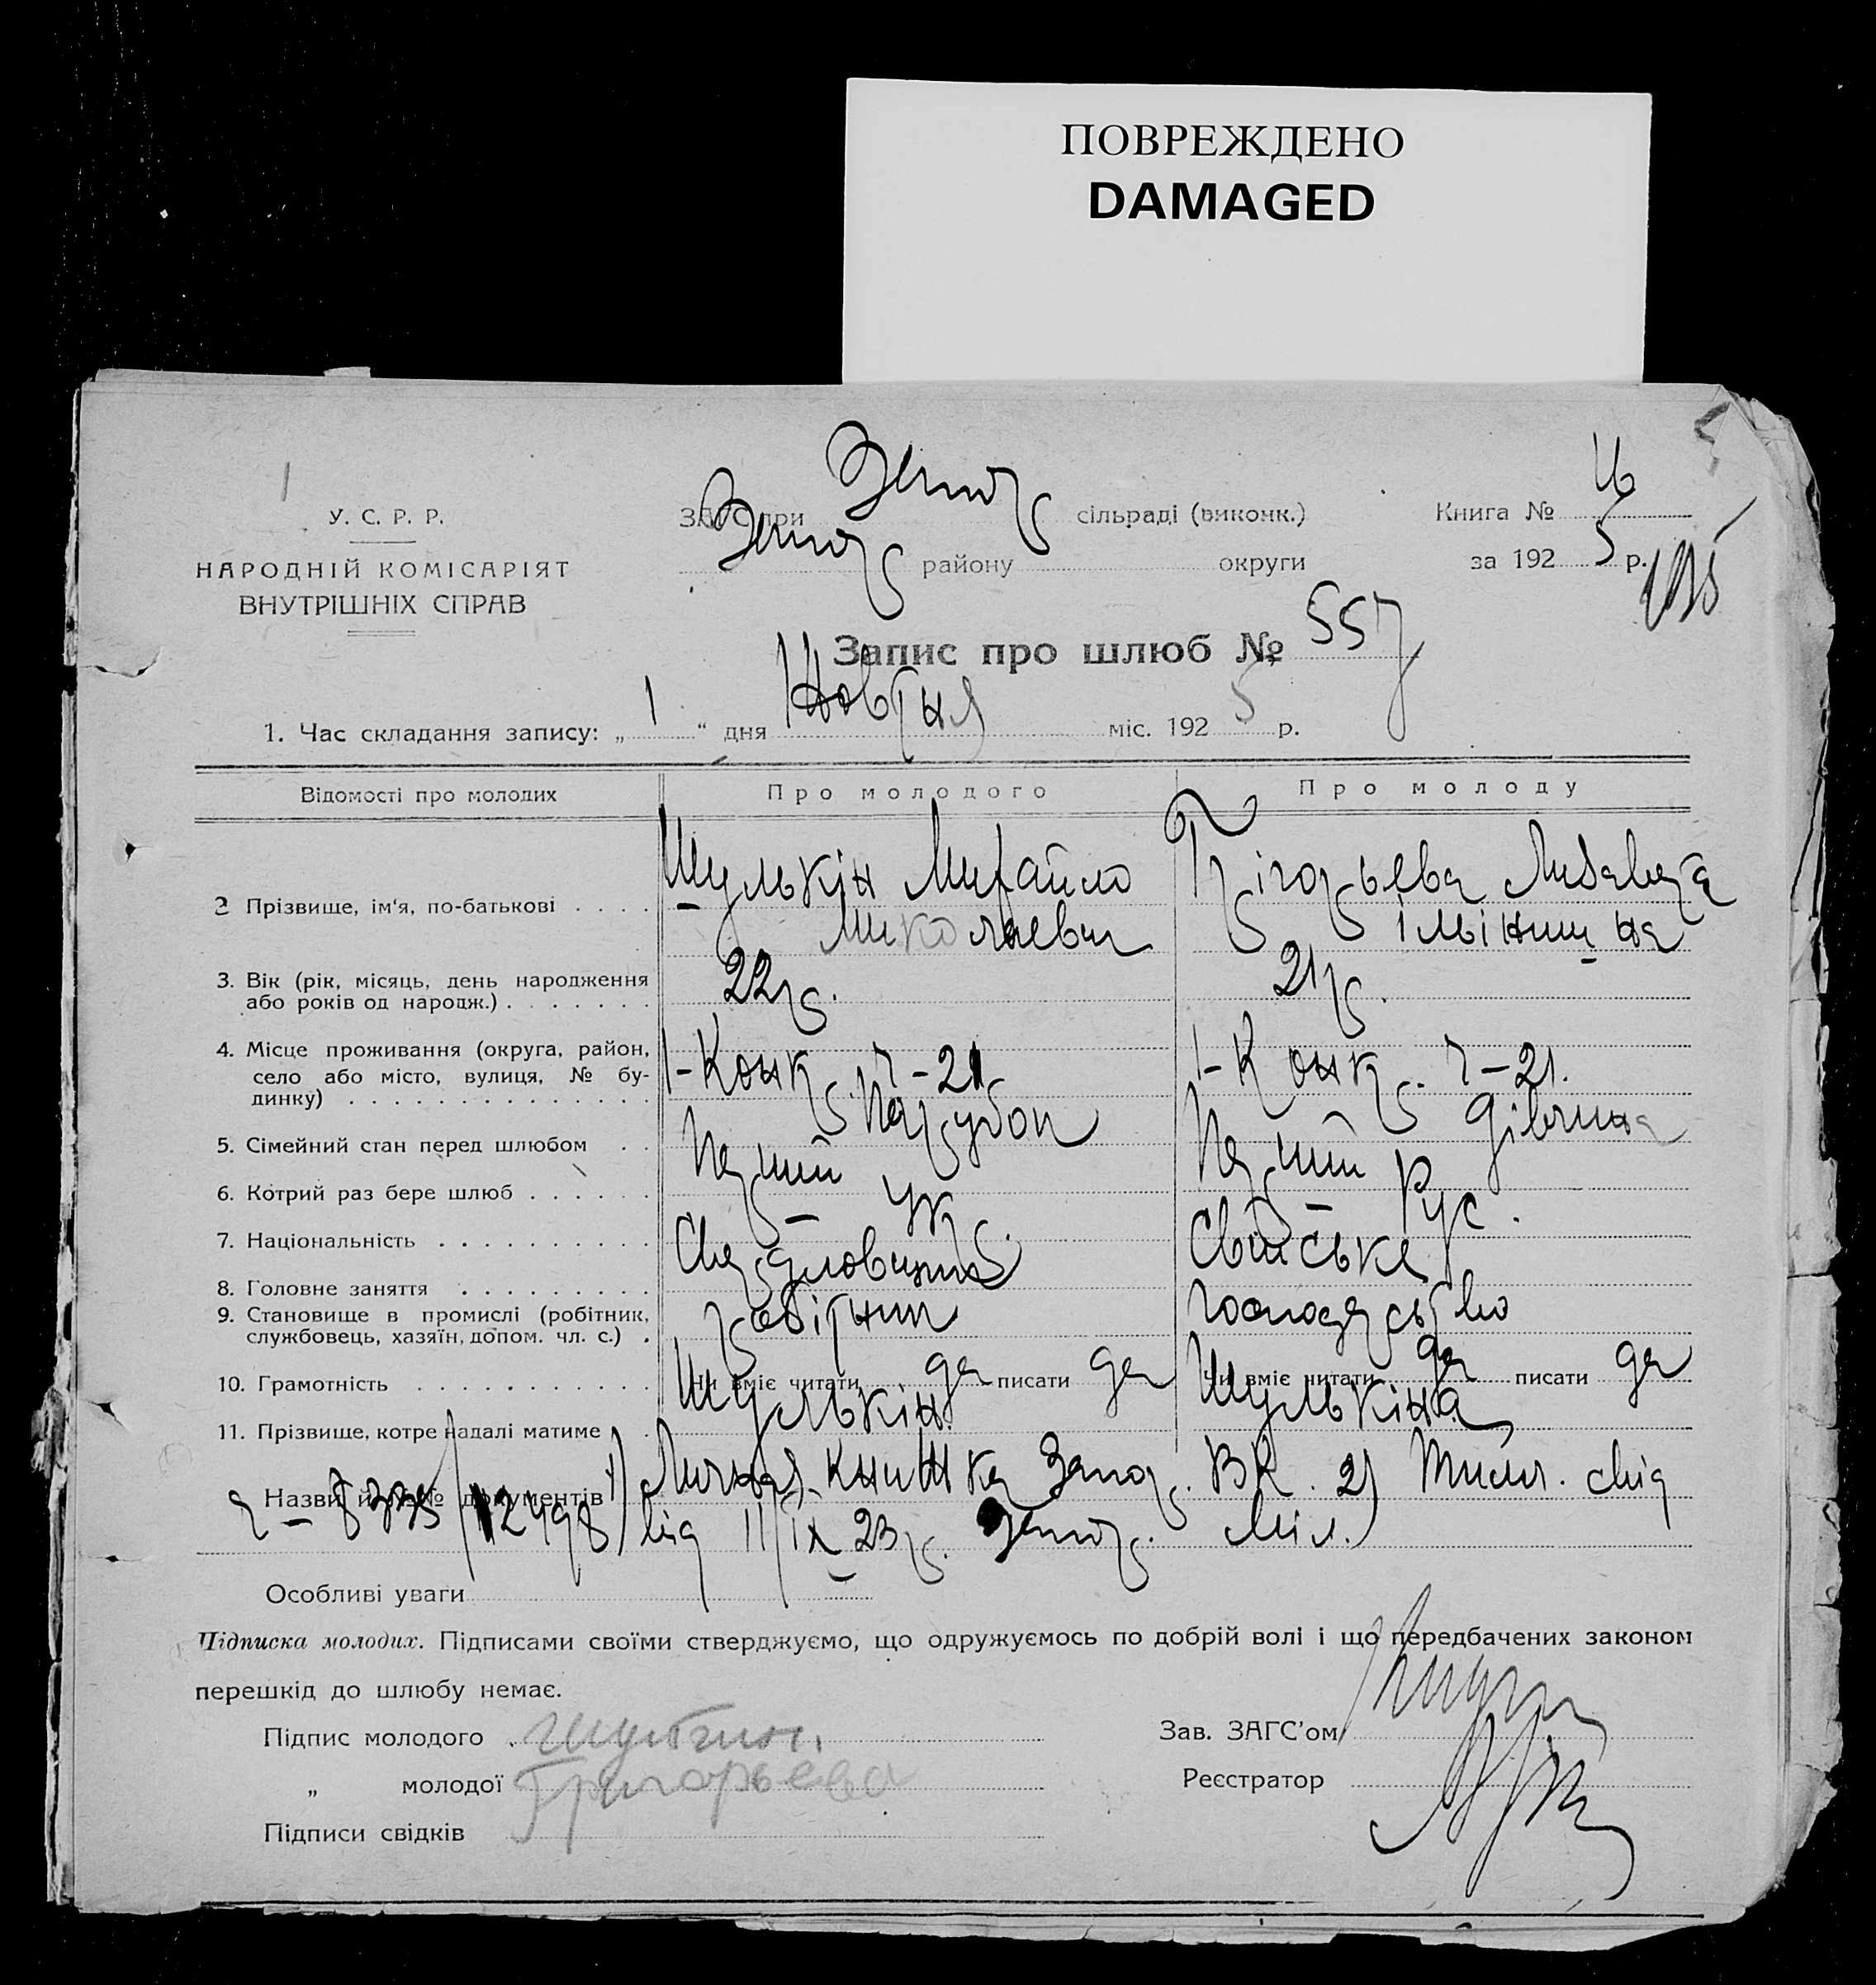 ПОВРЕЖДЕНО
DAMAGED
У. С. Р. Р.
НАРОДНІЙ КОМІСАРІЯТ
ВНУТРІШНІХ СПРАВ
ЗАГС при Запор сільраді (виконк.)
Запор району округи
Книга №
за 1925 р.
Запис про шлюб № 557
1. Час складання запису: „1“ дня Жовтня міс. 1925 р.
Відомості про молодих Про молодого Про молоду
2 Прізвище, ім'я, по-батькові Шулькін Михайло Миколаевич Грігорьева Лизавета
3. Вік (рік, місяць, день народження або років од народж.) 22 р. 21 р.
4. Місце проживання (округа, район, село або місто, вулиця, № будинку) 1-Конк. 7-21 1-Конк. 7-21.
5. Сімейний стан перед шлюбом Парубок Дівчина
6. Котрий раз бере шлюб Перший Перший
7. Національність Укр. Рус.
8. Головне заняття Свійське
9. Становище в промислі (робітник, службовець, хазяїн, допом. чл. с.) робітник господарство
10. Грамотність Чи вміє читати да писати да Чи вміє читати да писати да
11. Прізвище, котре надалі матиме Шулькін Шулькіна
Назви й №№ документів 1) Личная книжка Запор. ВК. 2) свід
від 11/IX 23 р. Запор. Міл.
Особливі уваги
Підписка молодих. Підписами своїми стверджуємо, що одружуємось по добрій волі і що передбачених законом
перешкід до шлюбу немає.
Підпис молодого
„ молодої Григорьева
Підписи свідків
Зав. ЗАГС'ом
Реєстратор